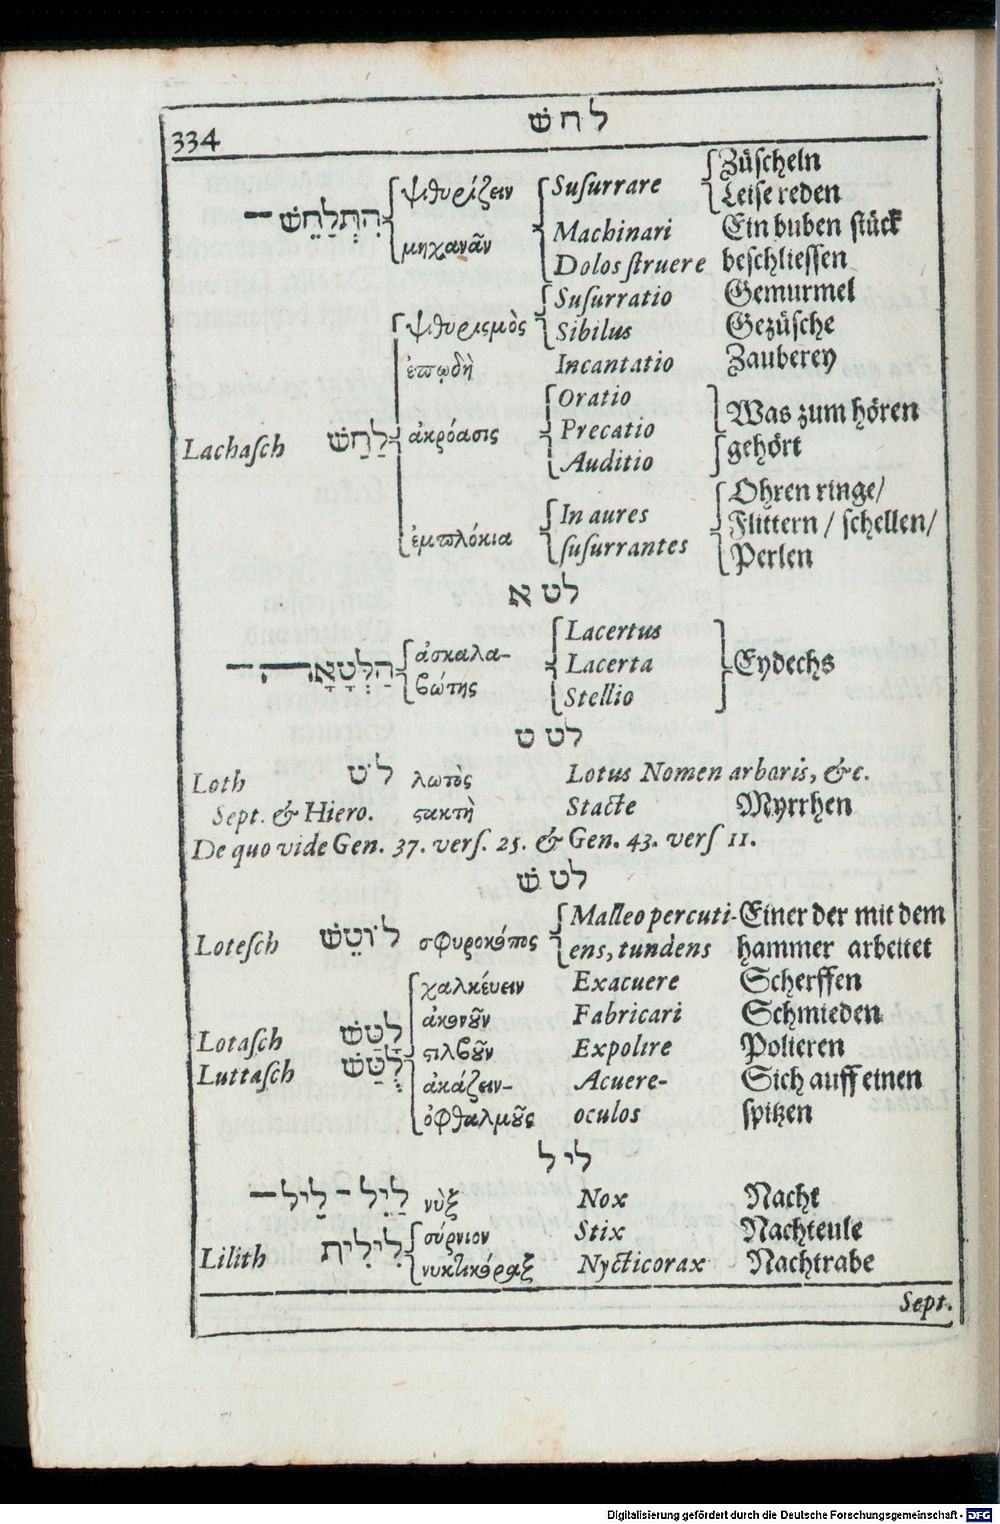 334 לחש
ψιθυρίζειν Suſurrare Züſcheln
Leiſe reden
הִתְלַחֵשׁ—
μηχανᾶν Machinari Ein buben ſtück
Dolos ſtruere beſchlieſſen
Suſurratio Gemurmel
ψιθυρισμὸς Sibilus Gezüſche
ἐπῳδὴ Incantatio Zauberey
Oratio Was zum hören
Lachaſch לַחַשׁ ἀκρόασις Precatio gehört
Auditio
Ohren ringe/
ἐμπλόκια In aures Flittern / ſchellen/
ſuſurrantes Perlen
לטא
Lacertus
הַלְּטָאָה— ἀσκαλα- Lacerta Eydechs
βώτης Stellio
לטט
Loth לֹט λωτὸς Lotus Nomen arboris, &c.
Sept. & Hiero. στακτὴ Stacte Myrrhen
De quo vide Gen. 37. verſ. 25. & Gen. 43. verſ 11.
לטש
Malleo percuti- Einer der mit dem
Loteſch לוֹטֵשׁ σφυροκόπος ens, tundens hammer arbeitet
χαλκεύειν Exacuere Scherffen
Lotaſch לָטַשׁ ἀκονοῦν Fabricari Schmieden
Luttaſch לֻטַּשׁ στιλβοῦν Expolire Polieren
ἀκάζειν- Acuere- Sich auff einen
ὀφθαλμοὺς oculos ſpitzen
ליל
לַיִל - לֵיל— νὺξ Nox Nacht
σύρνιον Stix Nachteule
Lilith לִילִית νυκτικόραξ Nycticorax Nachtrabe
Sept.
Digitalisierung gefördert durch die Deutsche Forschungsgemeinschaft - DFG